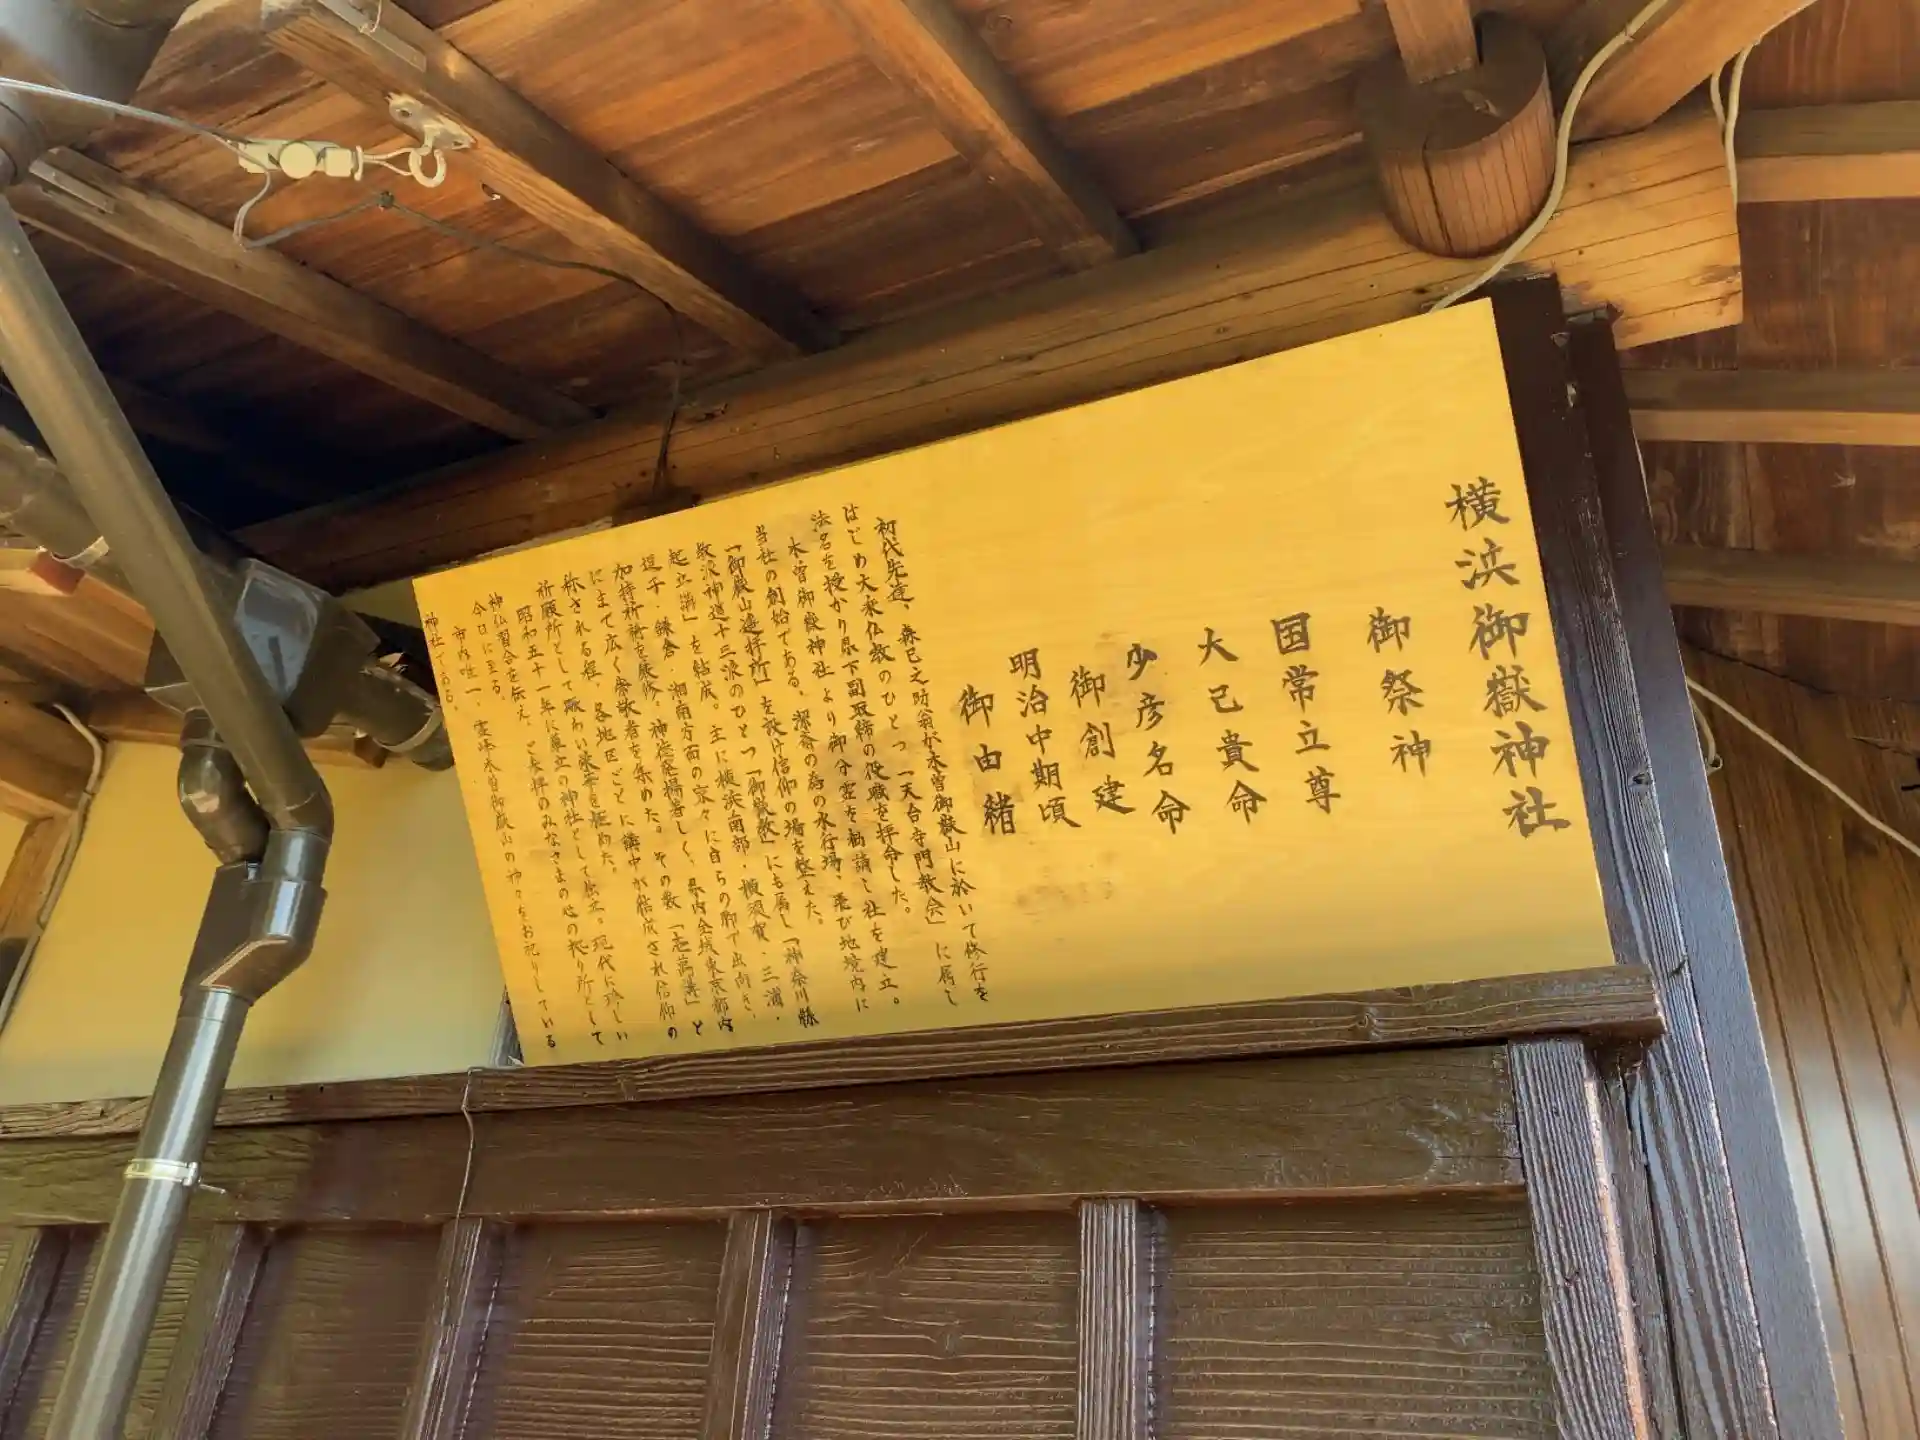 横浜御嶽神社
御祭神
国常立尊
大己貴命
少彦名命
御創建
明治中期頃
御由緒
初代先達、森巳之助翁が木曽御嶽山に於いて修行を
はじめ大乗仏教のひとつ「天台寺門教会」に属し
法名を授かり県下副取締の役職を拝命した。
木曽御嶽神社より御分霊を勧請し社を建立。
当社の創始である。潔斎の為の水行場、及び地境内に
「御嶽山遥拝所」を設け信仰の場を整えた。
教派神道十三派のひとつ「御嶽教」にも属し「神奈川縣
起立講」を結成。主に横浜南部・横須賀・三浦・
逗子・鎌倉・湘南方面の家々に自らの脚で出向き、
加持祈祷を厳修。神徳発揚著しく、県内全域東京都内
にまで広く崇敬者を集めた。その数「志萬講」と
称される程。各地区ごとに講中が結成され信仰の
祈願所として賑わい栄華を極めた。
昭和五十一年に単立の神社として独立。現代に珍しい
神仏習合を伝え、ご参拝のみなさまの心の拠り所として
今日に至る。
市内唯一、霊峰木曽御嶽山の神々をお祀りしている
神社である。